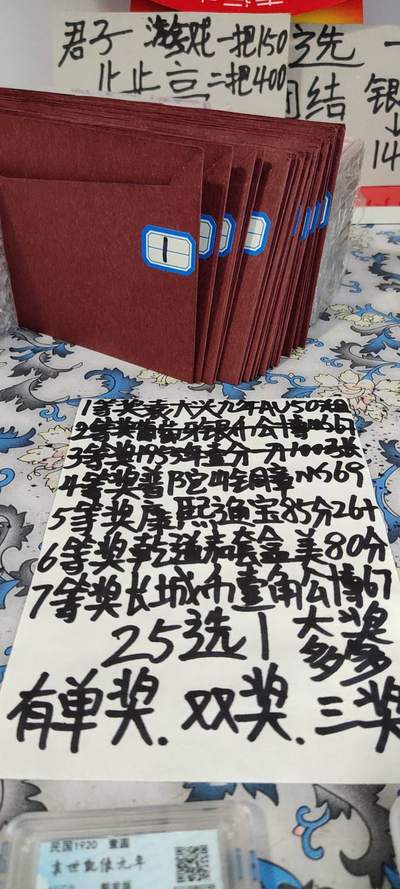 君子 游戏一把150
止止言二把400
选 一
结 银
14
1
1等奖袁大头九年AU50
2等奖葡萄牙银币公博MS67
3等奖1953年壹分一刀100张
4等奖普陀山铜章MS69
5等奖康熙通宝85分26+
6等奖乾隆 套盒美80分
7等奖长城币壹角公博67
25选1 大奖多多
有单奖.双奖.三奖
民国1920 壹圆
袁世凯像九年